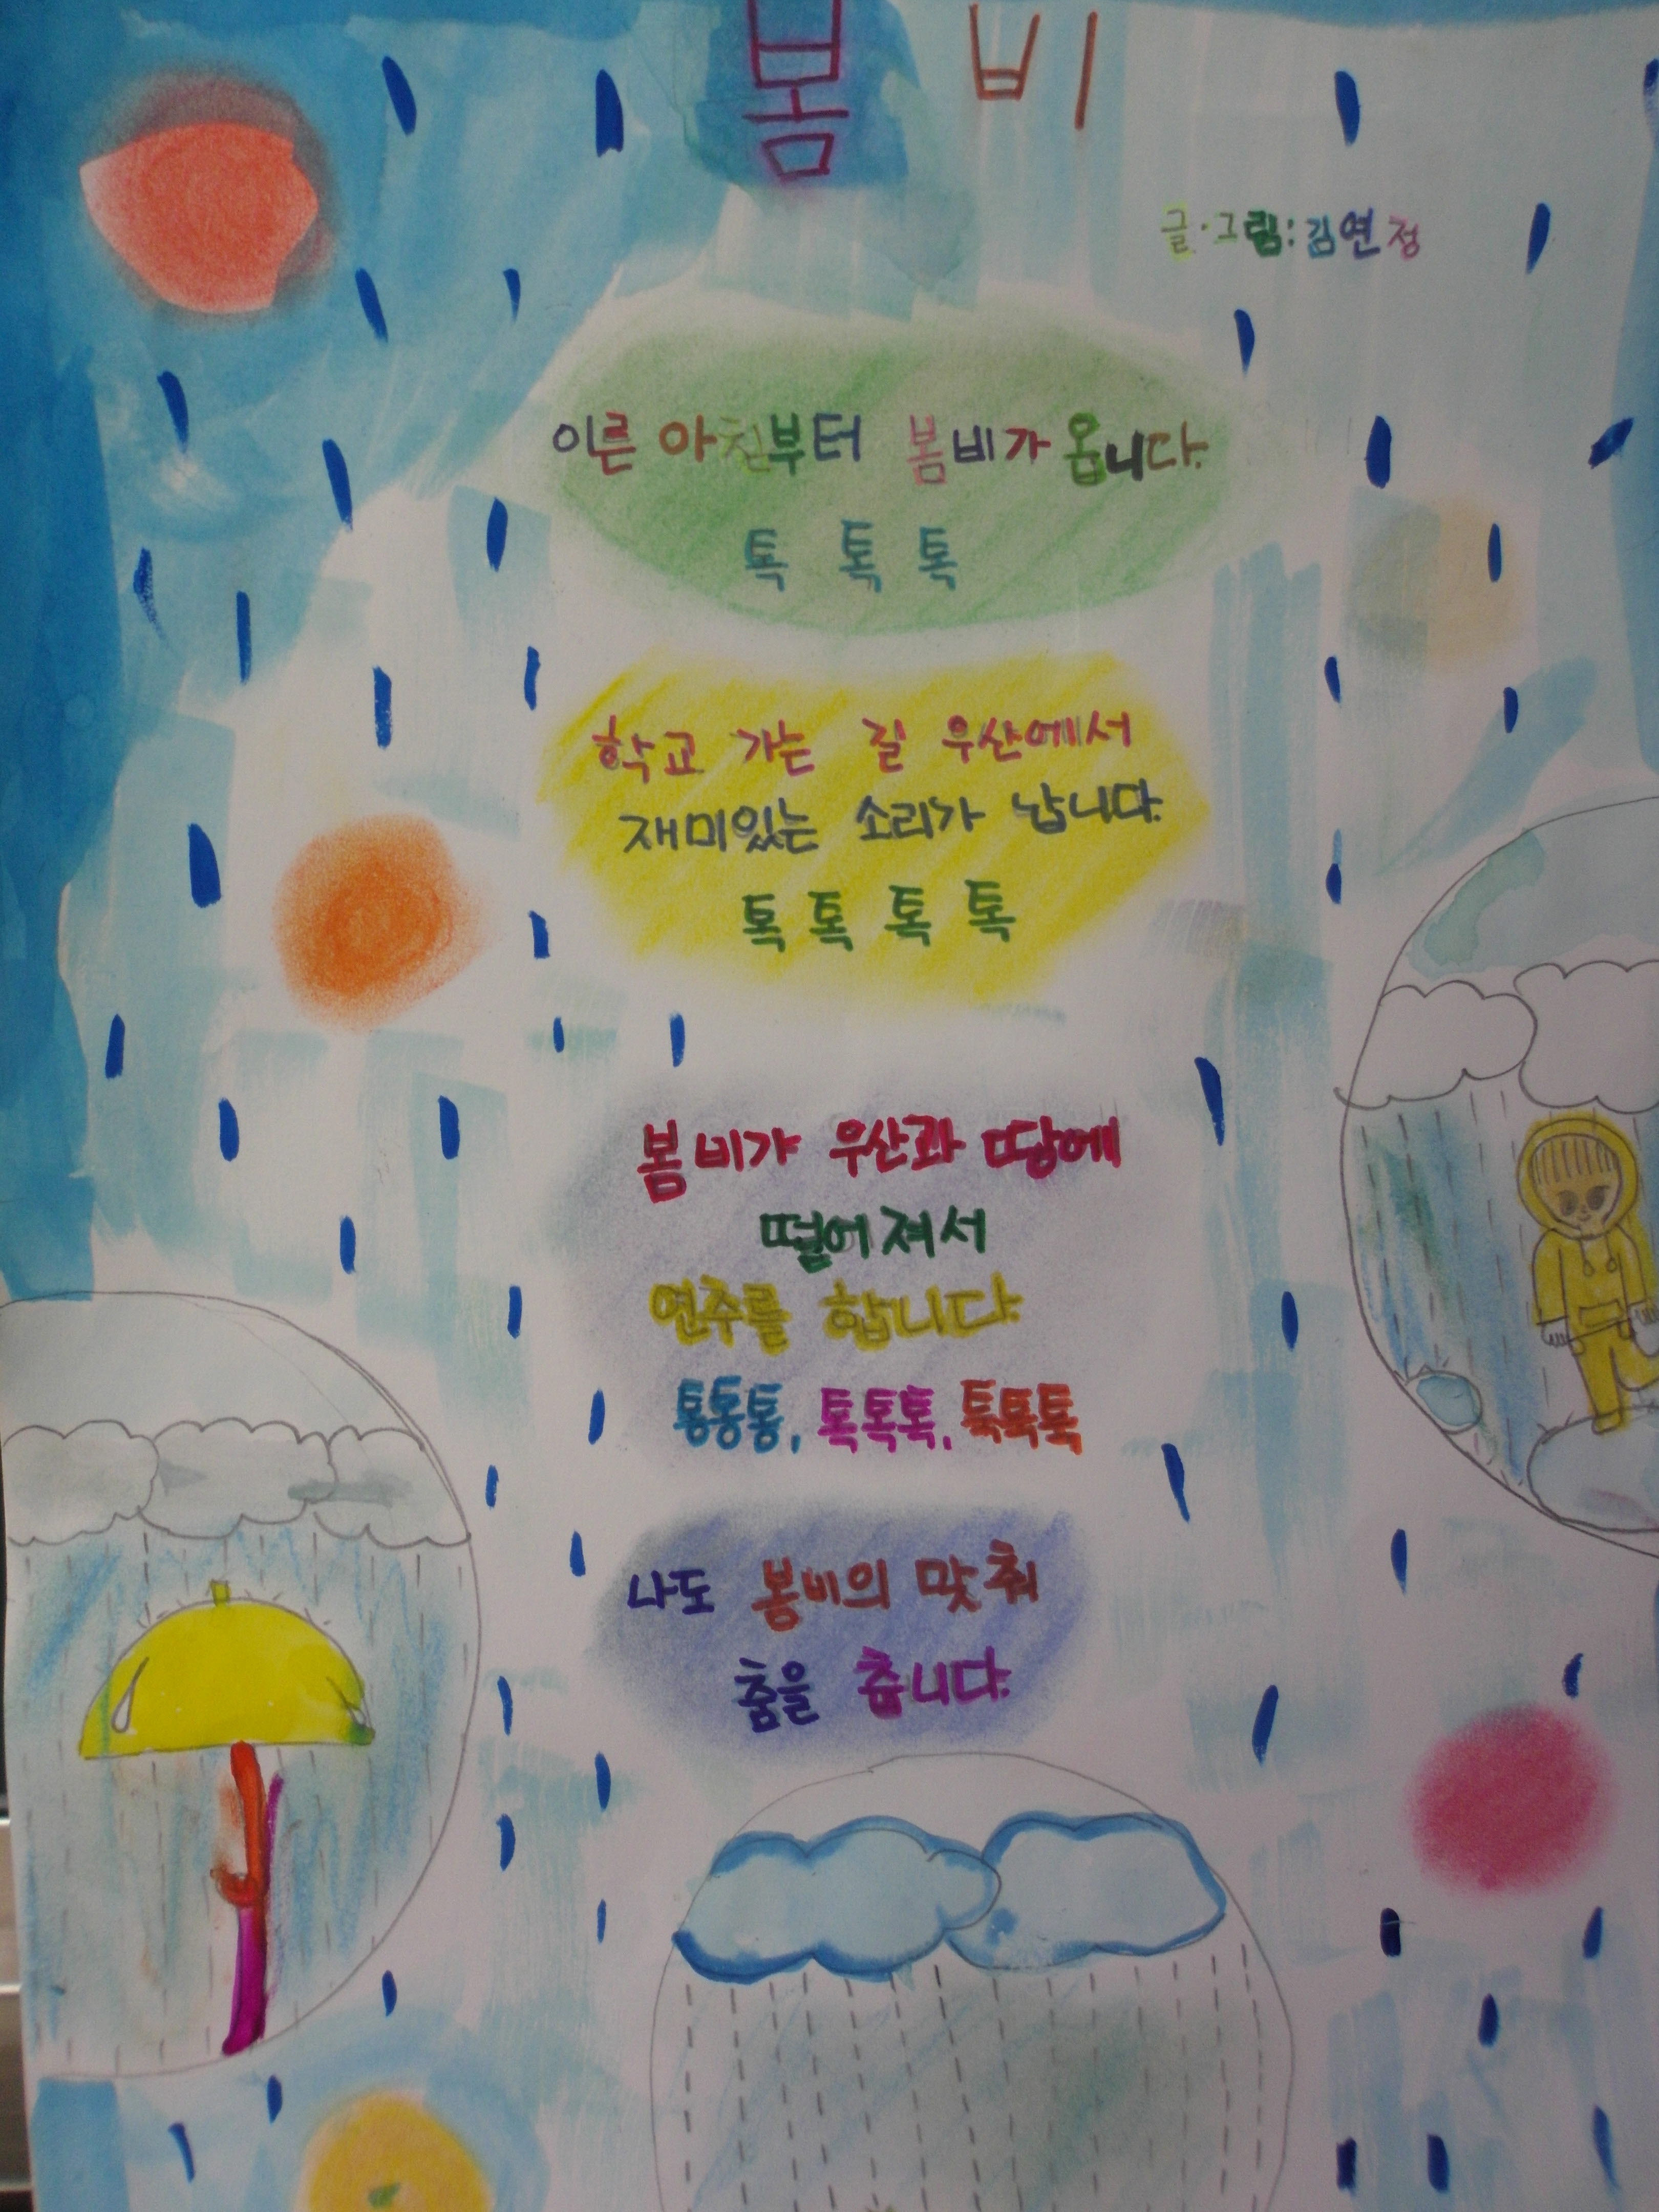 봄 비
글·그림: 김연정
이른 아침부터 봄비가 옵니다.
톡 톡 톡
학교 가는 길 우산에서
재미있는 소리가 납니다.
톡 톡 톡 톡
봄비가 우산과 땅에
떨어져서
연주를 합니다.
통통통, 톡톡톡, 툭툭툭
나도 봄비의 맞춰
춤을 춥니다.